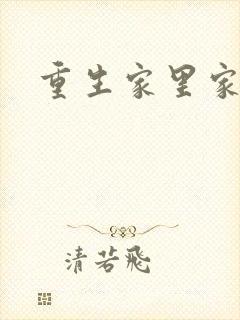 重生家里家
清若飛